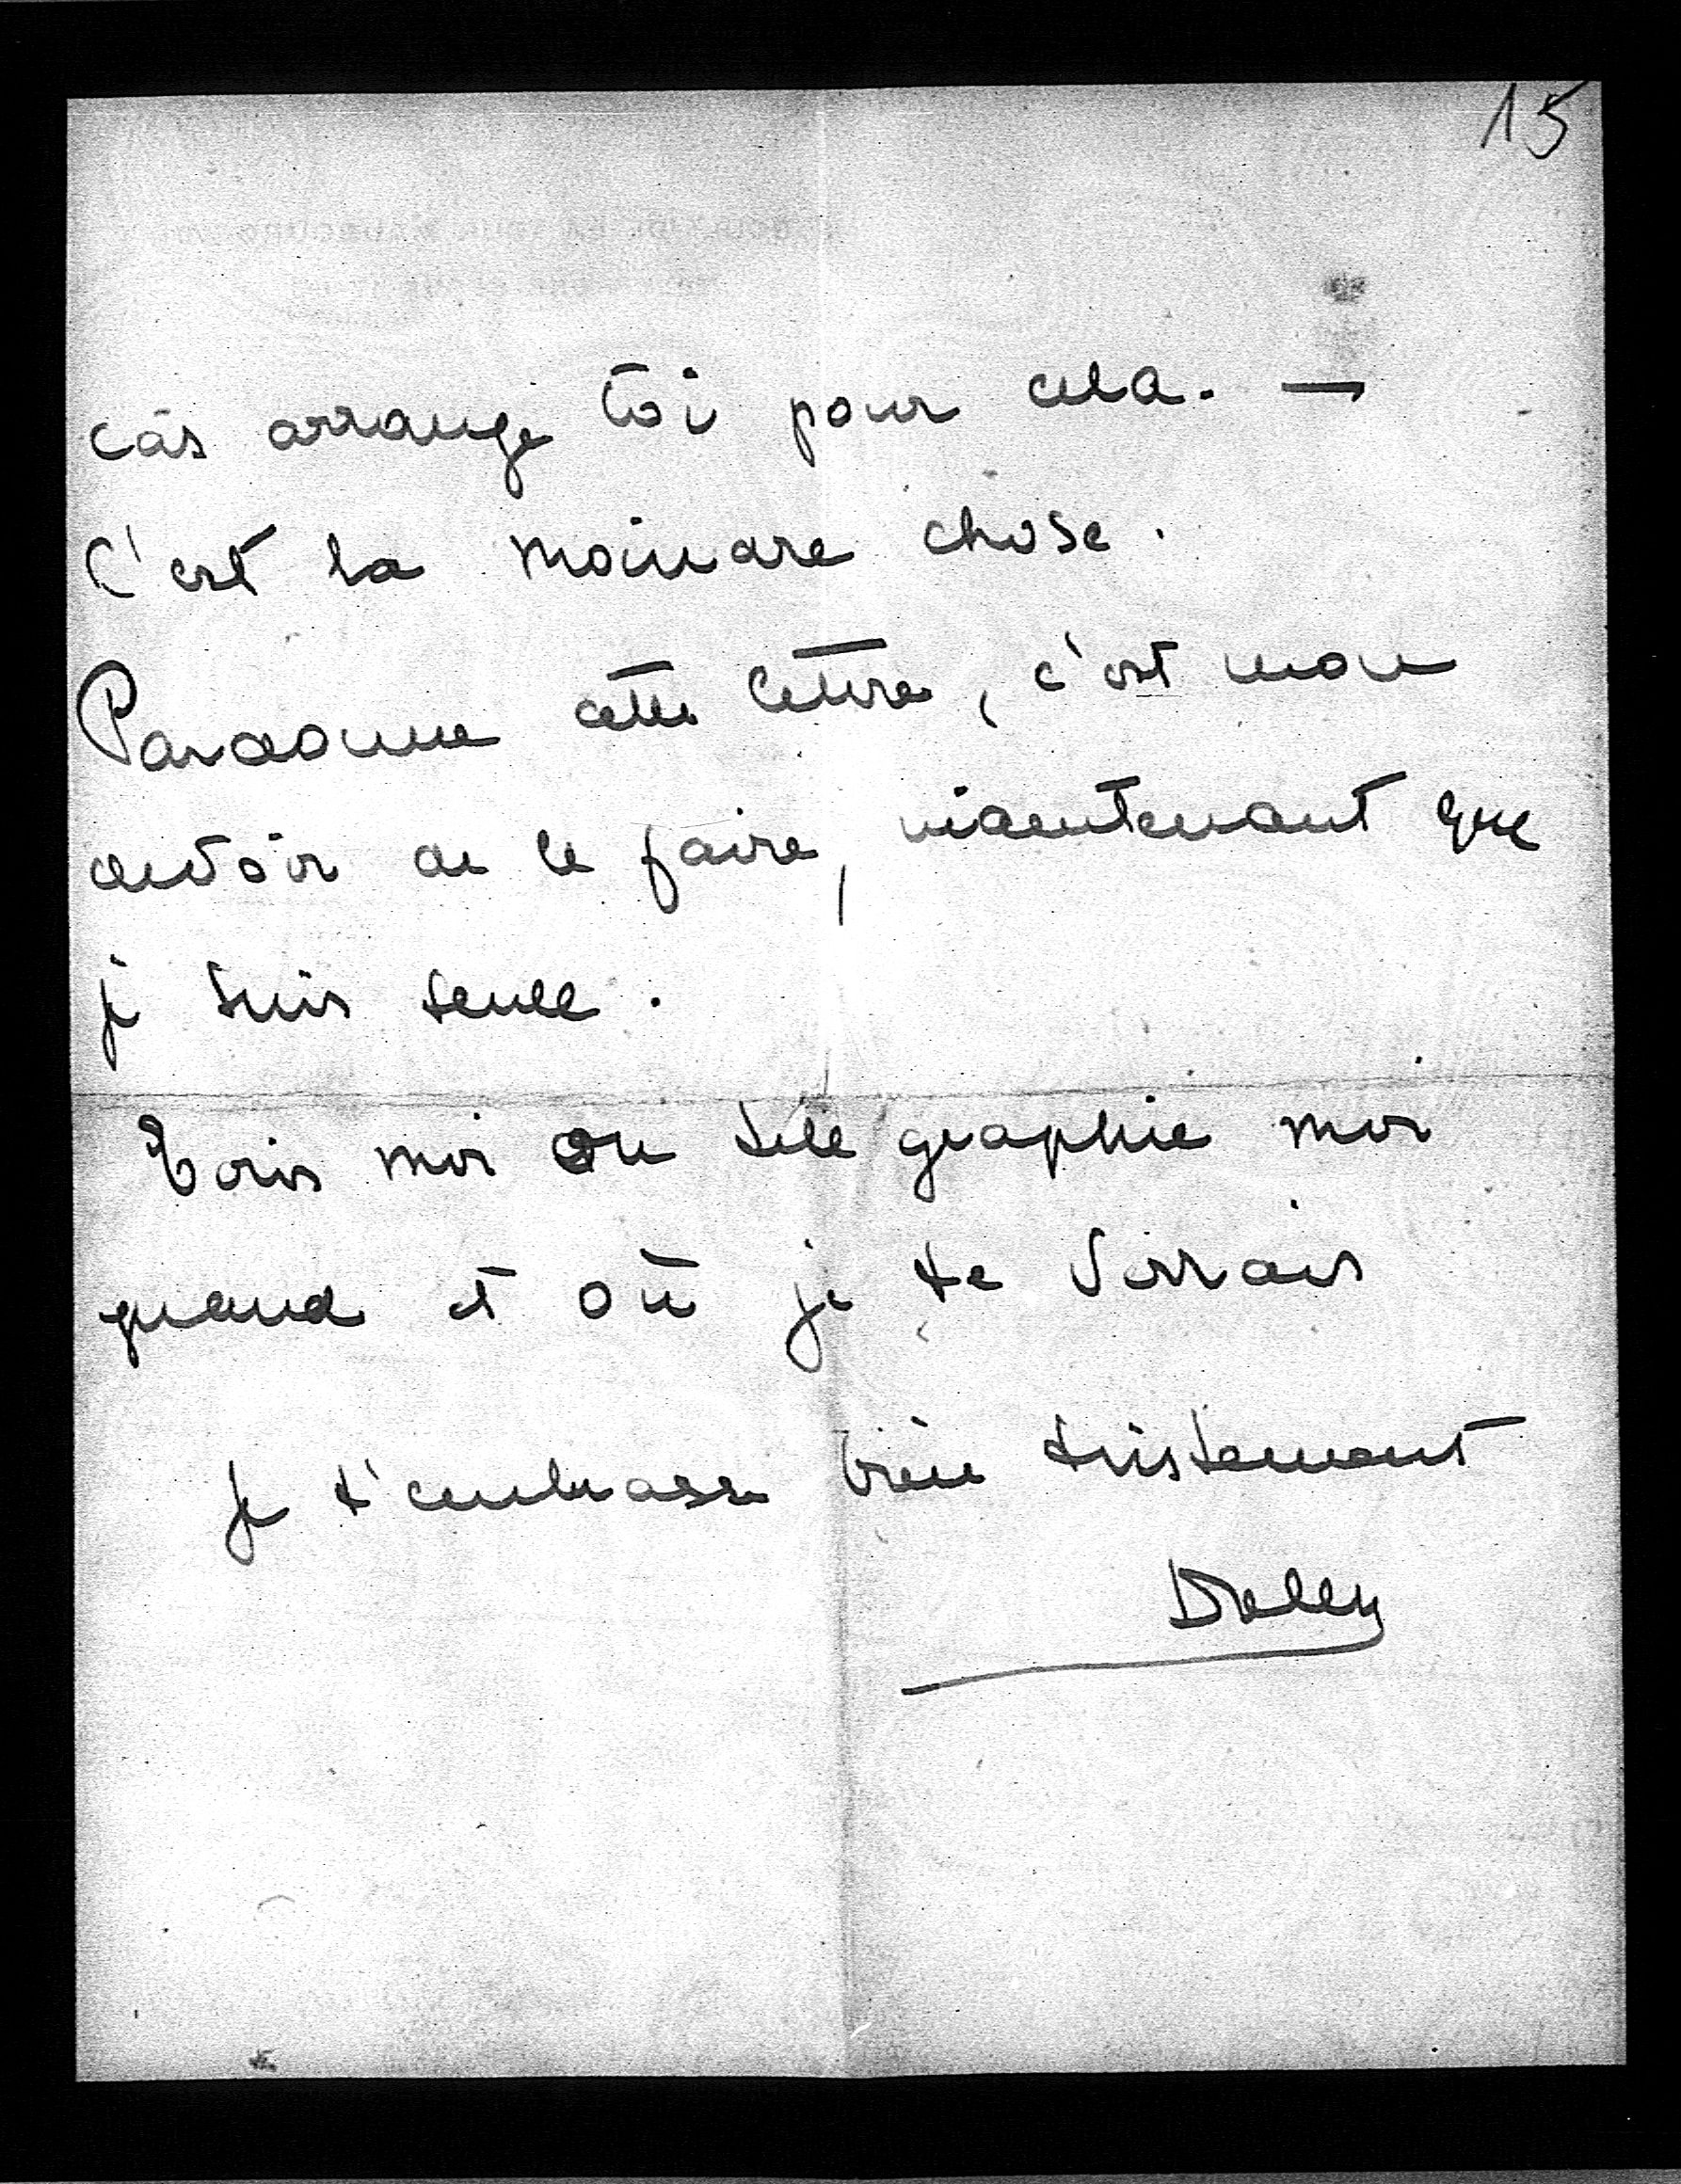 15
cas arrange toi pour cela. —
C'est la moindre chose.
Pardonne cette lettre, c'est mon
devoir de le faire, maintenant que
je suis seule.
Ecris moi ou télégraphie moi
quand et où je te verrais
Je t'embrasse bien tristement
Dolly